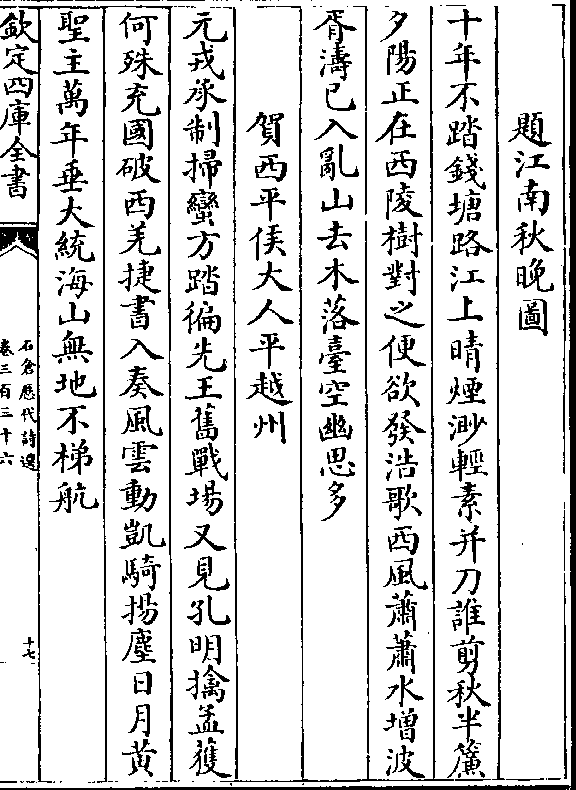 題江南秋晚圖
十年不踏錢塘路江上晴煙渺輕素并刀誰剪秋半簾
夕陽正在西陵樹對之便欲發浩歌西風蕭蕭水增波
胥濤已入亂山去木落臺空幽思多
賀西平侯大人平越州
元戎承制掃蠻方踏徧先王舊戰場又見孔明擒孟獲
何殊充國破西羌捷書入奏風雲動凱騎揚塵日月黃
聖主萬年垂大統海山無地不梯航
欽定四庫全書
石倉歷代詩選
卷三百三十六
十七